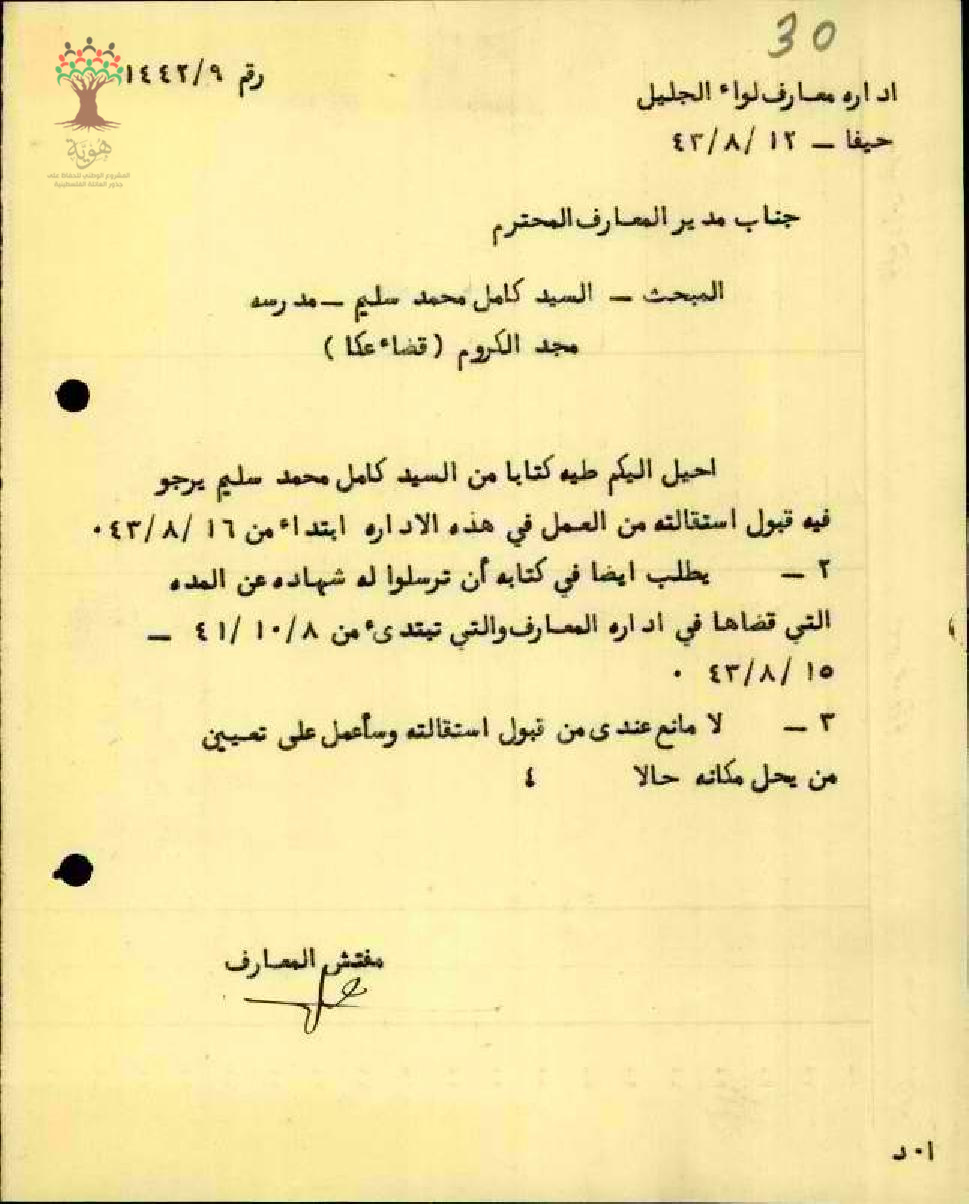 30
رقم ١٤٤٢/٩
اداره معارف لواء الجليل
حيفا – ١٢ /٤٣/٨
هُوِيَّة
المشروع الوطني للحفاظ على
جذور العائلة الفلسطينية
جناب مدير المعارف المحترم
المبحث – السيد كامل محمد سليم – مدرسه
مجد الكروم (قضاء عكا)
احيل اليكم طيه كتابا من السيد كامل محمد سليم يرجو
فيه قبول استقالته من العمل في هذه الاداره ابتداء من ١٦ /٤٣/٨٠
٢ – يطلب ايضا في كتابه أن ترسلوا له شهاده عن المده
التي قضاها في اداره المعارف والتي تبتدىء من ٨/١٠ /٤١ –
١٥ /٤٣/٨ ٠
٣ – لا مانع عندى من قبول استقالته وسأعمل على تعيين
من يحل مكانه حالا ٤
مفتش المعارف
ا٠د